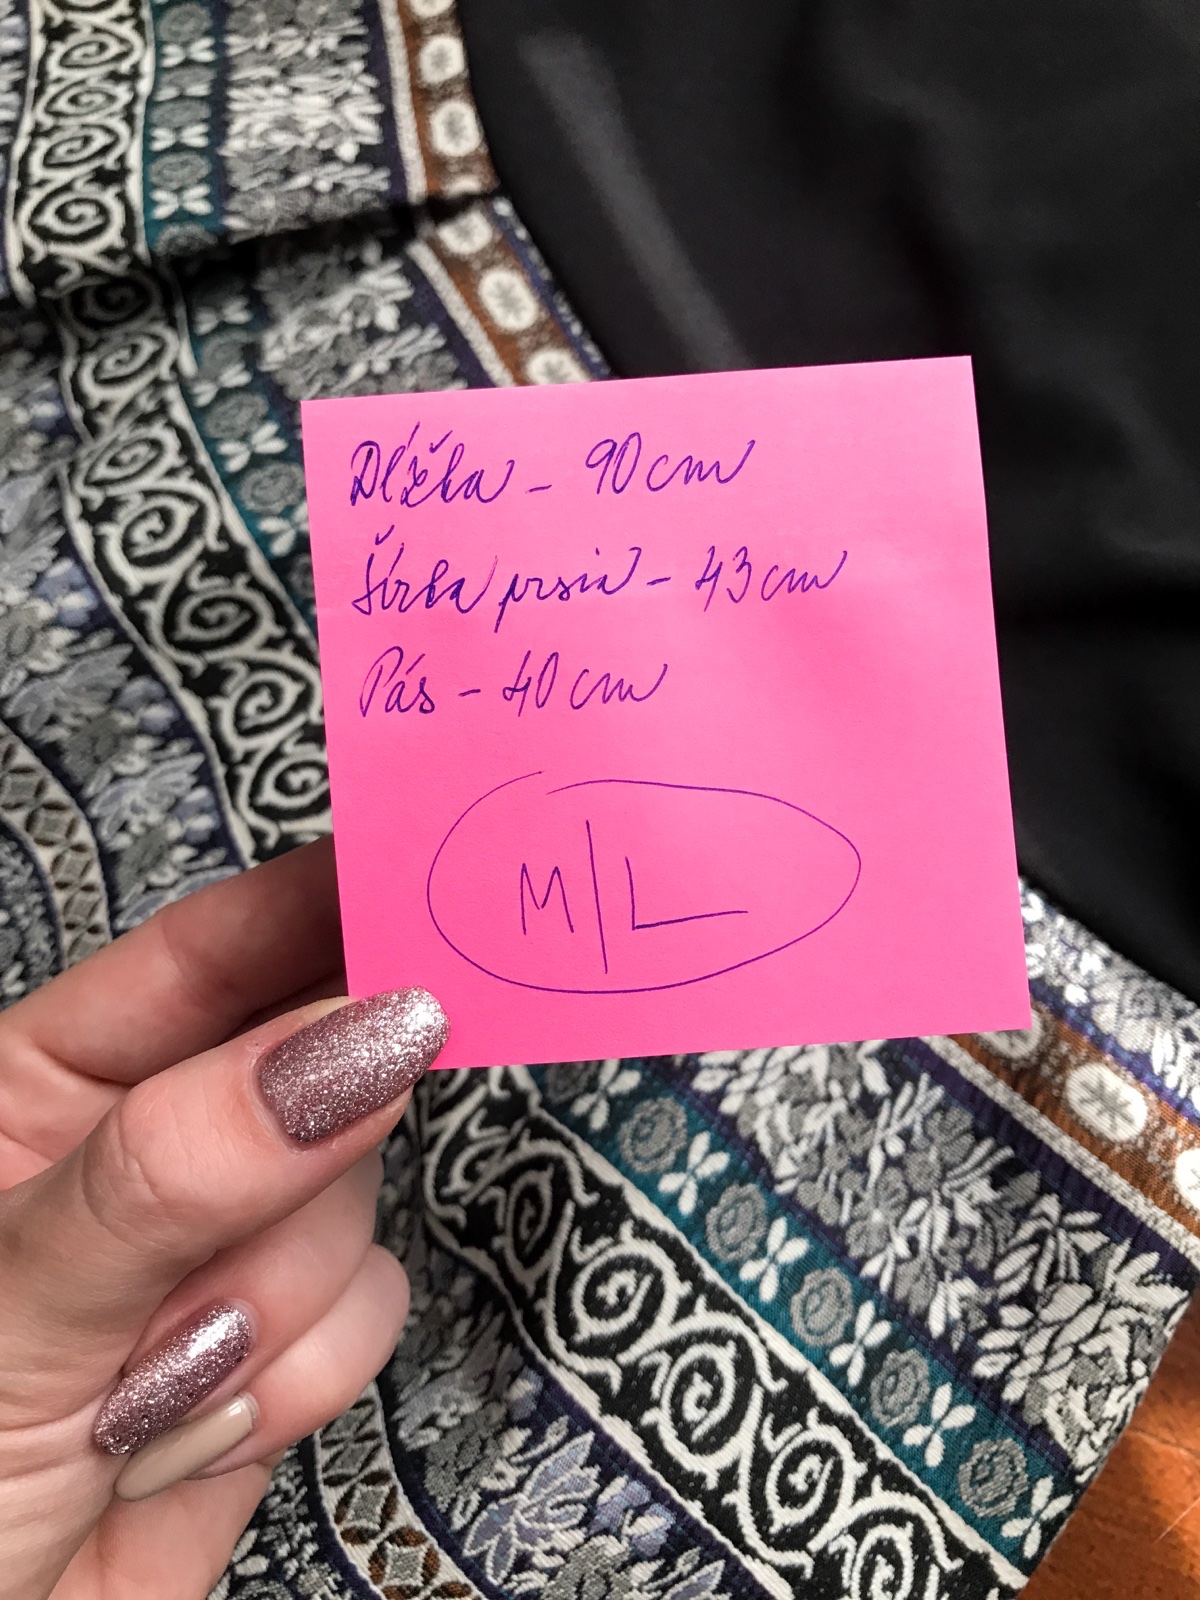 Dĺžka - 90 cm
Šírka prsia - 43 cm
Pás - 40 cm
M/L